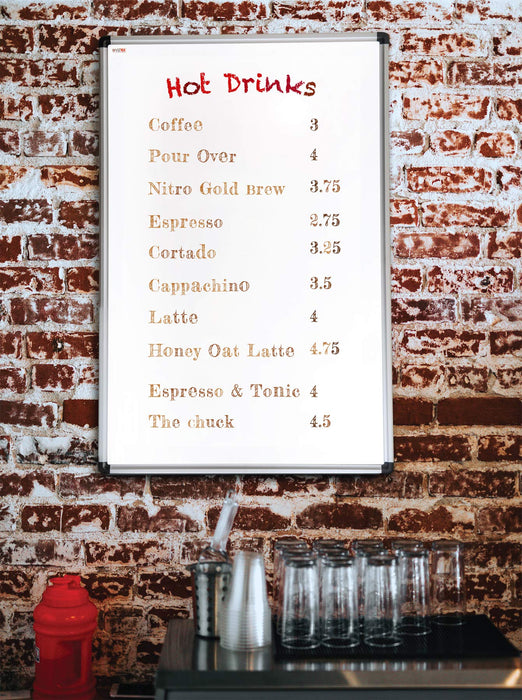 Hot Drinks
Coffee 3
Pour Over 4
Nitro Gold Brew 3.75
Espresso 2.75
Cortado 3.25
Cappachino 3.5
Latte 4
Honey Oat Latte 4.75
Espresso & Tonic 4
The chuck 4.5